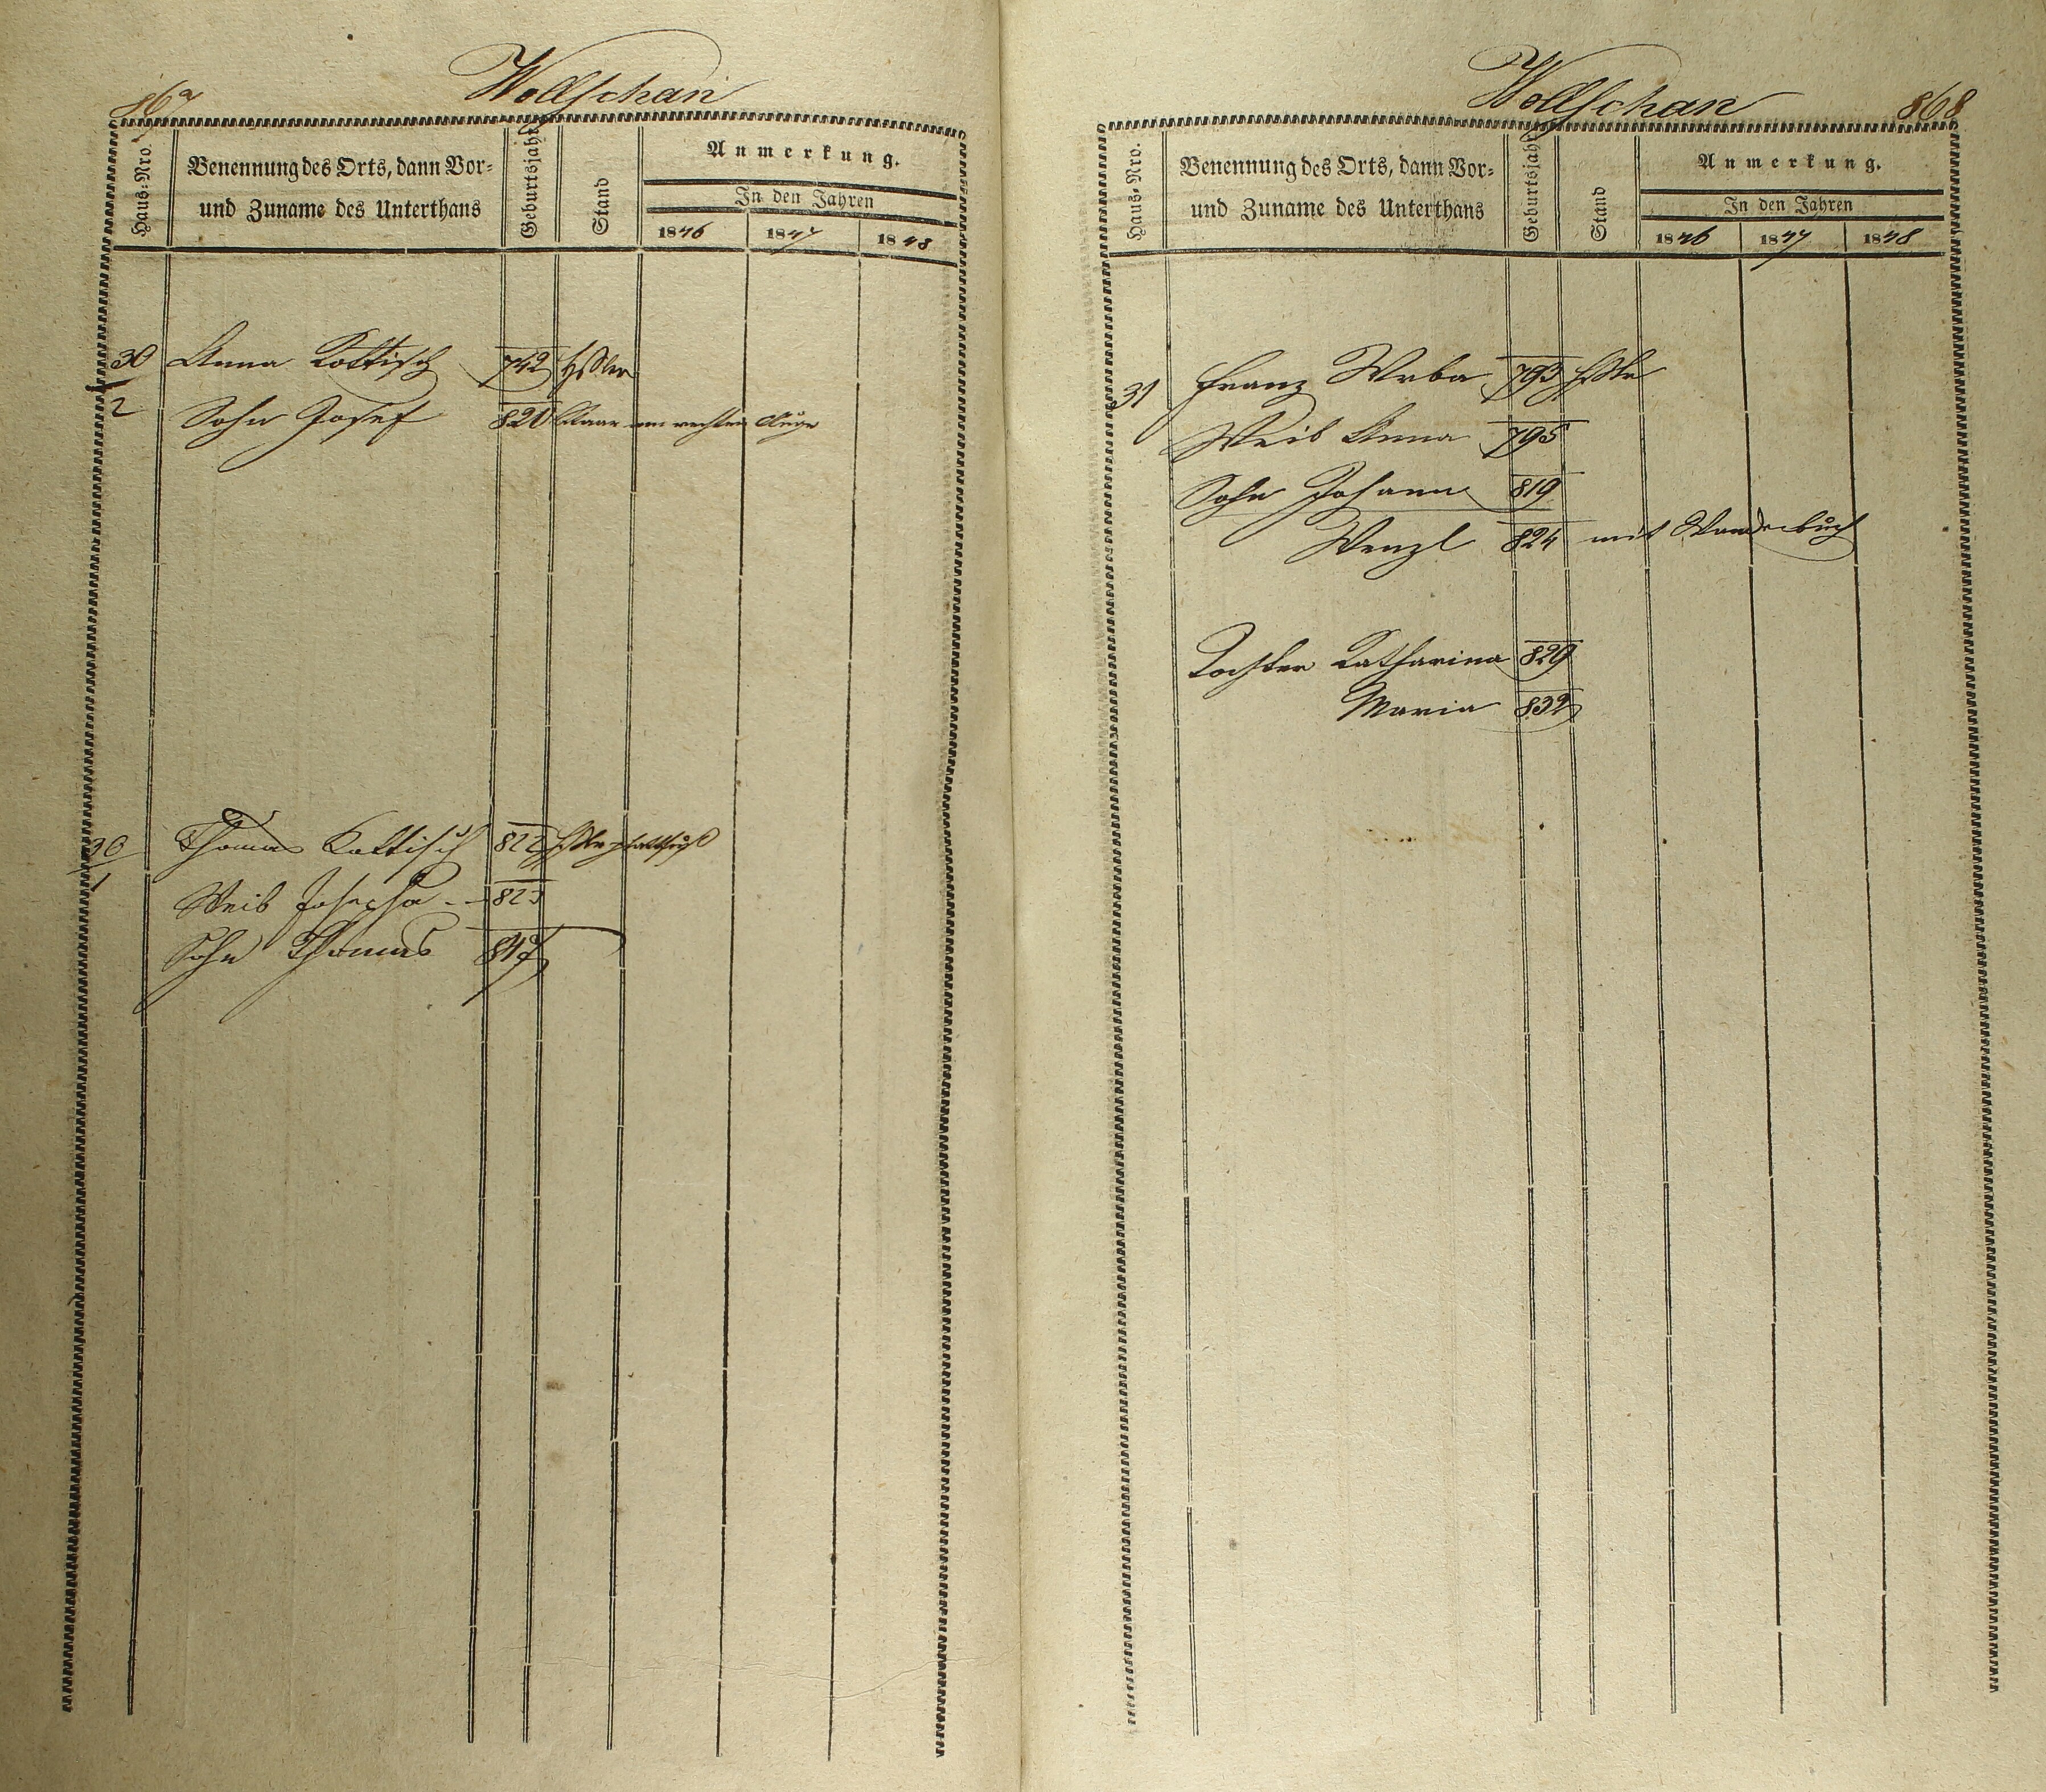 867
Wollschan
Haus-Nro.
Benennung des Orts, dann Vor-
und Zuname des Unterthans
Geburtsjahr
Stand
Anmerkung.
In den Jahren
1846 1847 1848
30 Anna Kottisch 742
2
Sohn Josef 820 Staar am rechten Auge
30 Thomas Kottisch 822
1
Weib Josepha 823
Sohn Thomas 847
Wollschan
868
Haus-Nro.
Benennung des Orts, dann Vor-
und Zuname des Unterthans
Geburtsjahr
Stand
Anmerkung.
In den Jahren
1846 1847 1848
31 Franz Wrba 793
Weib Anna 795
Sohn Johann 819
Wenzl 824 mit Wanderbuch
Tochter Katharina 829
Maria 832